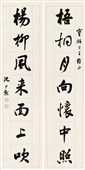 梧桐月向懷中照
楊柳風來面上吹
沈尹默